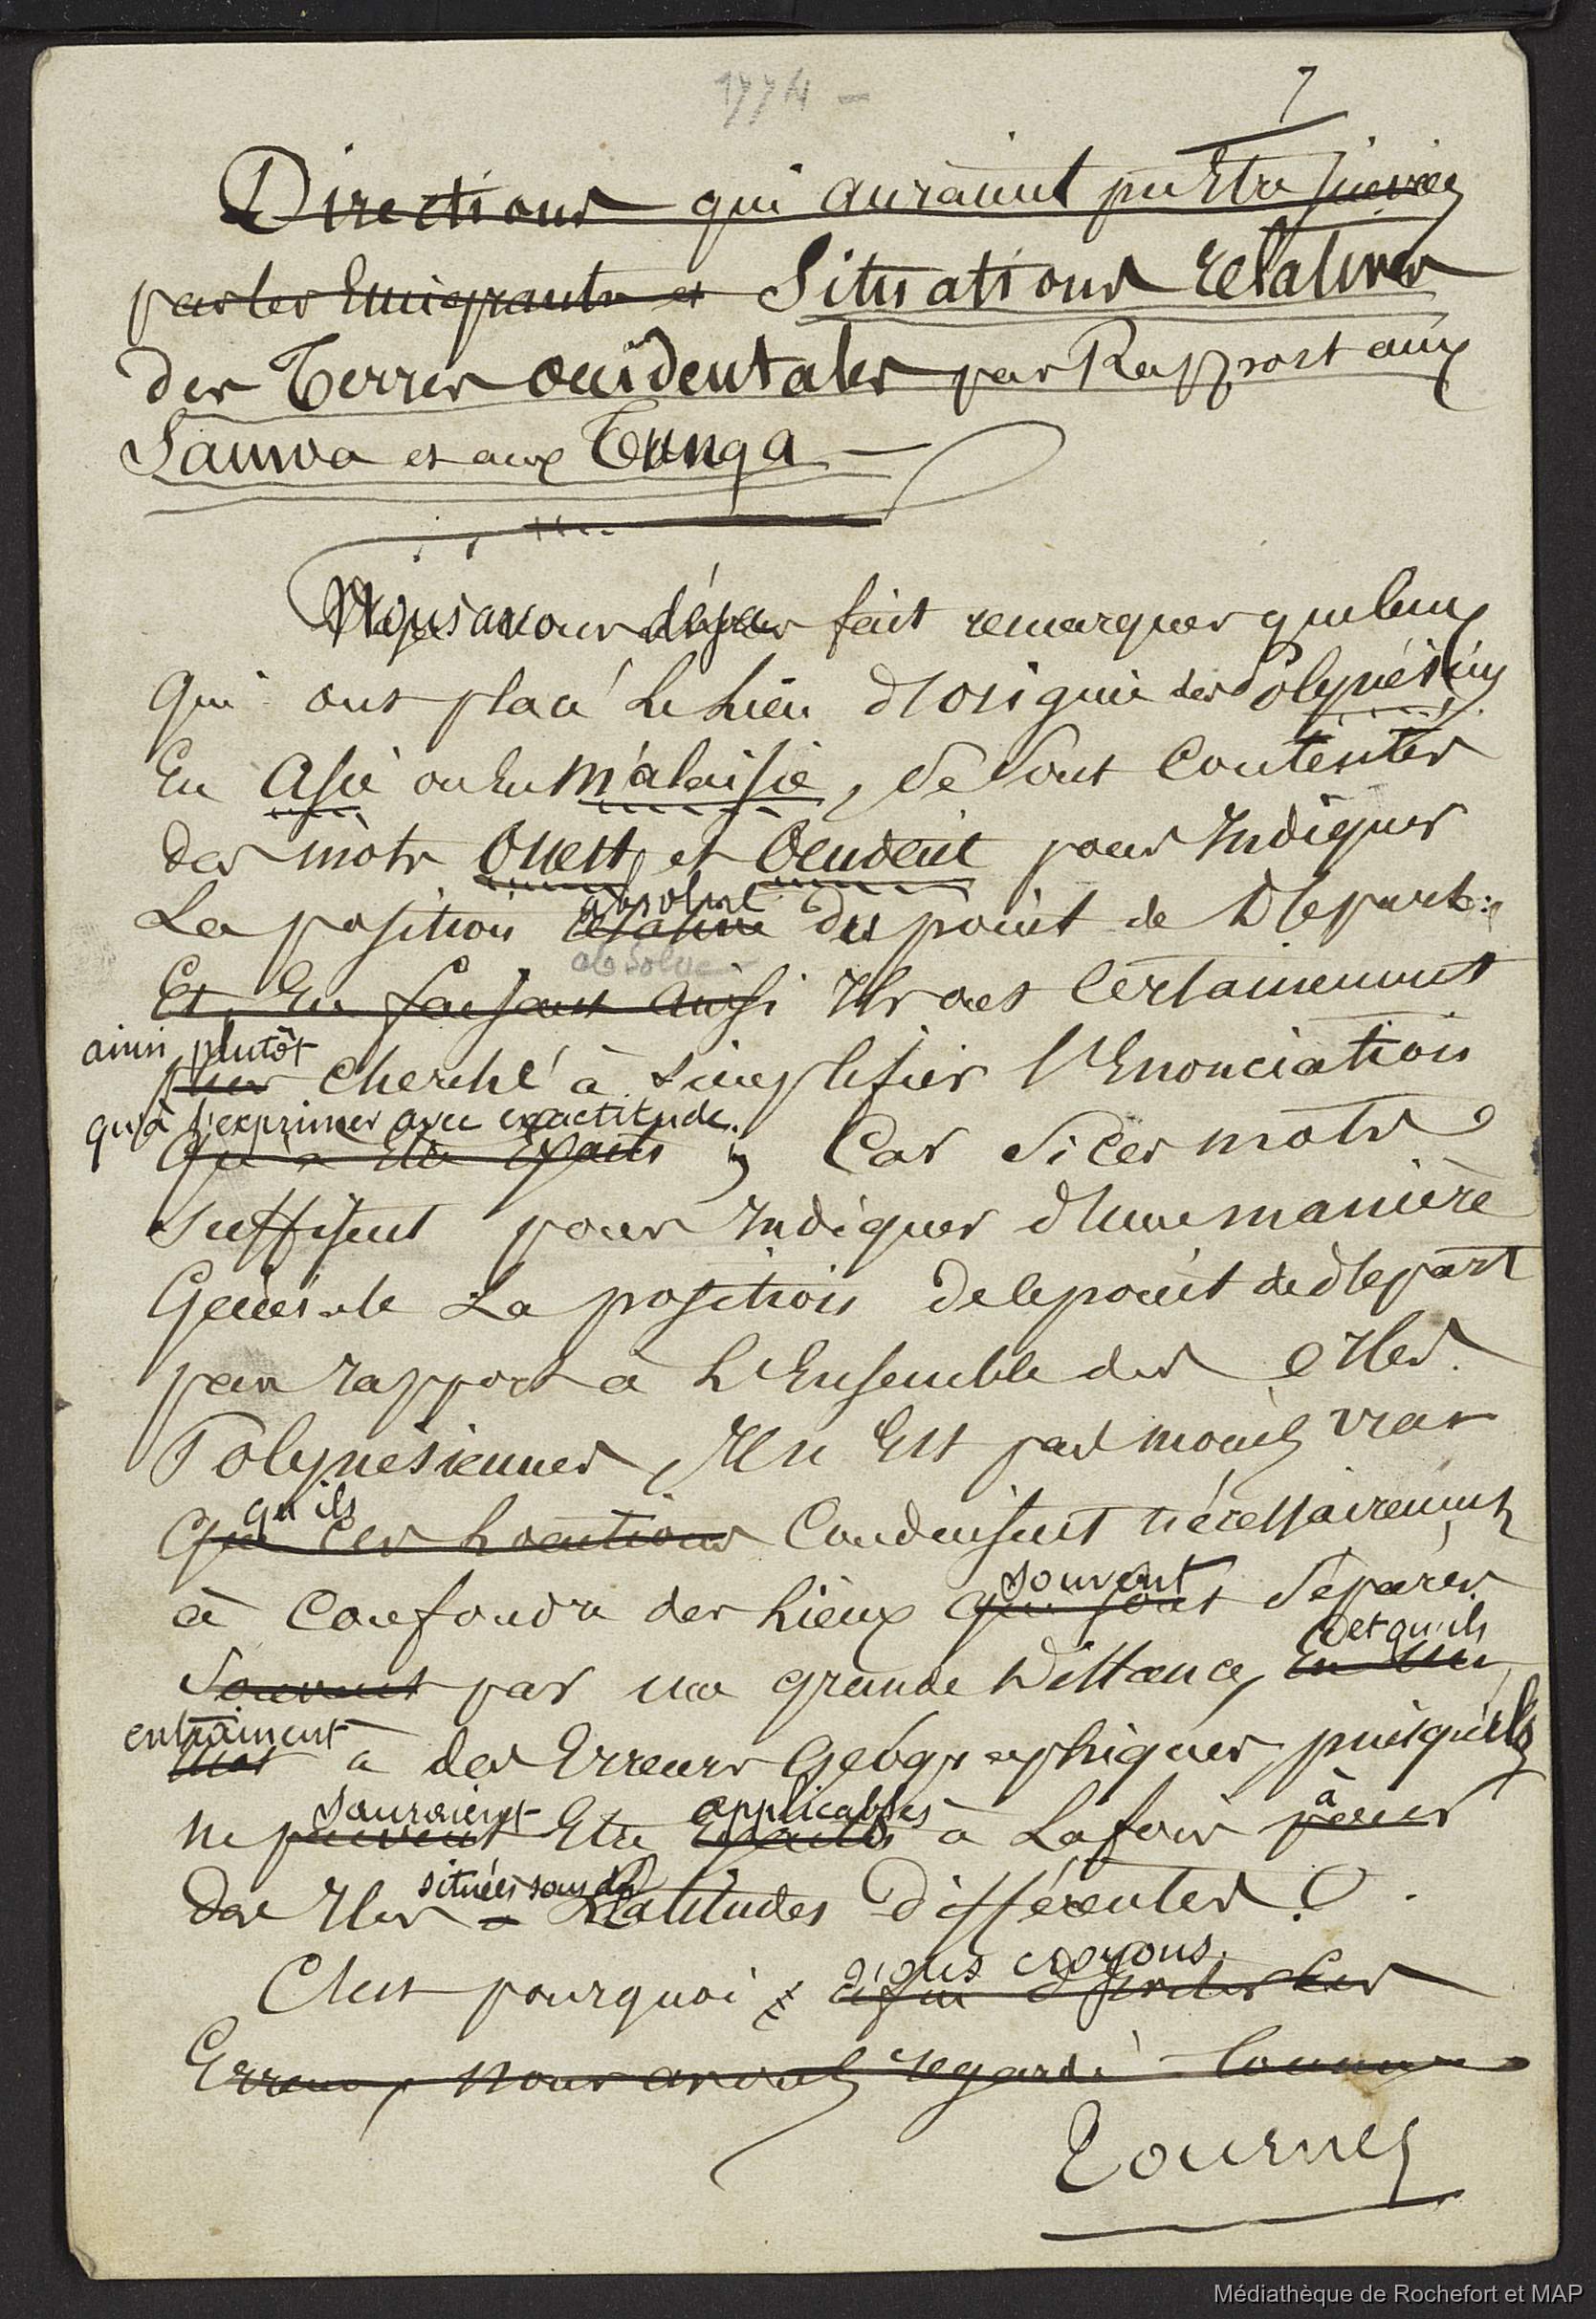 1774 -
7
Directions qui auraient pu Etre suivies
par les Emigrants et Situations relatives
des Terres occidentales par Rapport aux
Samoa et aux Tunga -
Nous avons déja fait remarquer que ceux
qui ont placé Le Lieu d'origine des Polynésiens
En Asie ou En Malaisie, se sont Contentés
des mots Ouest et Occident pour Indiquer
absolue
La position relative du point de Départ:
absolue
Et En faisant ainsi Ils ont Certainement
ainsi plutôt
plus Cherché à simplifier l'Enonciation
qu'à s'exprimer avec exactitude.
qu'à Etre Exacts ; Car Si Ces mots
suffisent pour Indiquer d'une manière
Générale La position de ce point de départ
par rapport à L'Ensemble des Iles
Polynésiennes, Il n'Est pas moins vrai
qu'ils
que Ces Locutions Conduisent nécessairement
souvent
à Confondre des Lieux qui sont Séparés
et qu'ils
Souvent par une grande Distance,
entraînent
à des Erreurs Géographiques, puisqu'ils
sauraient applicables à
ne peuvent Etre Exacts à La fois pour
situées sous des
des Iles à Latitudes différentes.
nous croyons.
C'est pourquoi, afin d'éviter Ces
Erreurs, nous avons regardé Comme
Tournez
Médiathèque de Rochefort et MAP